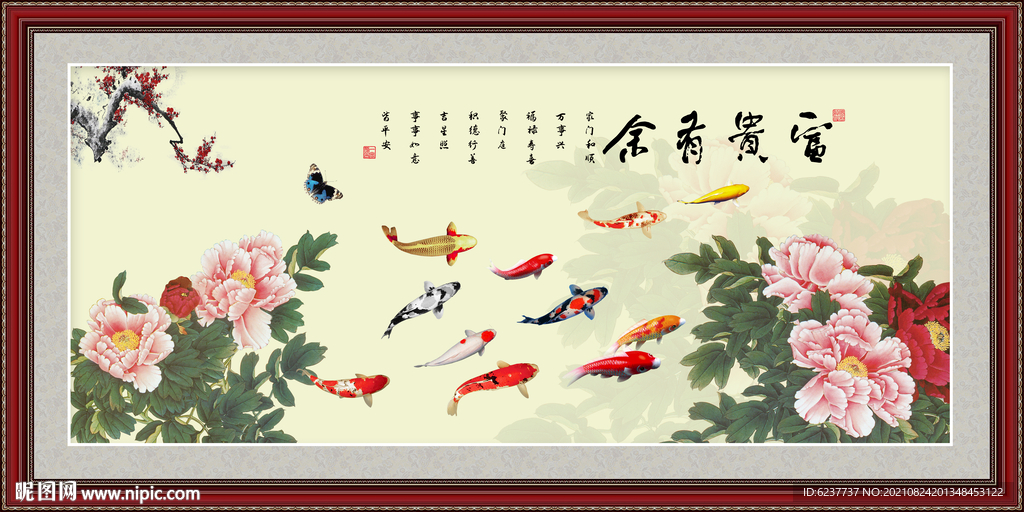 富貴有余
家门和順
万事兴
福禄寿喜
聚门庭
积德行善
吉星照
事事如意
平安
昵图网 www.nipic.com
ID:6237737 NO:20210824201348453122